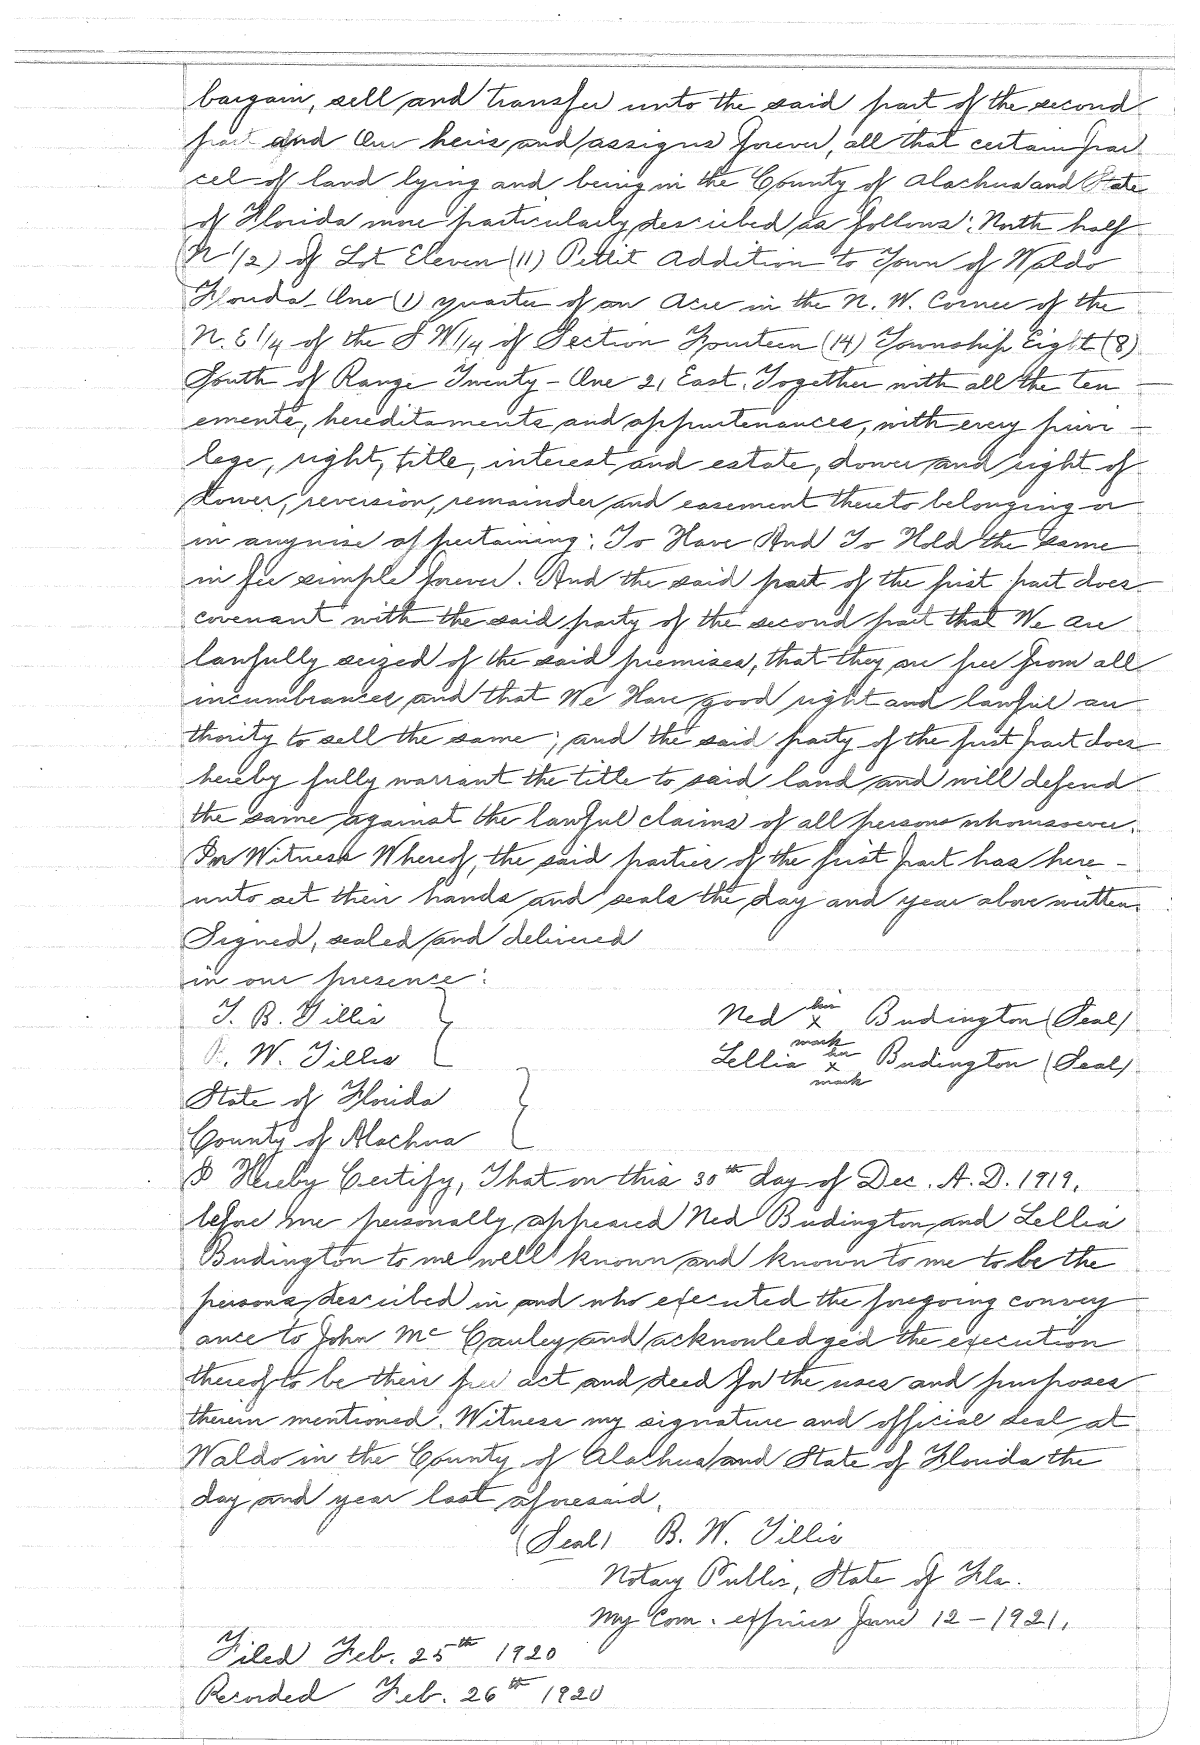 bargain, sell and transfer unto the said part of the second
part and Our heirs and assigns forever, all that certain par
cel of land lying and being in the County of Alachua and State
of Florida more particularly described as follows: North half
(N 1/2) of Lot Eleven (11) Pettit Addition to Town of Waldo
Florida One (1) quarter of an Acre in the N. W. Corner of the
N. E 1/4 of the S W 1/4 of Section Fourteen (14) Township Eight (8)
South of Range Twenty-One 21 East. Together with all the ten
ements, hereditaments and appurtenances, with every privi -
lege, right, title, interest and estate, dower and right of
dower, reversion, remainder and easement thereto belonging or
in anywise appertaining: To Have And To Hold the same
in fee simple forever. And the said part of the first part does
covenant with the said party of the second part that We are
lawfully seized of the said premises, that they are free from all
incumbrances, and that We Have good right and lawful au
thority to sell the same; and the said party of the first part does
hereby fully warrant the title to said land and will defend
the same against the lawful claims of all persons whomsoever.
In Witness Whereof, the said parties of the first part has here -
unto set their hands and seals the day and year above written.
Signed, sealed and delivered
in our presence:
T. B. Tillis
W. Tillis
Ned his x mark Budington (Seal)
Lellia her x mark Budington (Seal)
State of Florida
County of Alachua
I Hereby Certify, That on this 30th day of Dec. A. D. 1919,
before me personally appeared Ned Budington and Lellia
Budington to me well known and known to me to be the
persons described in and who executed the foregoing convey
ance to John Mc Cauley and acknowledged the execution
thereof to be their free act and deed for the uses and purposes
therein mentioned. Witness my signature and official seal at
Waldo in the County of Alachua and State of Florida the
day and year last aforesaid.
(Seal) B. W. Tillis
Notary Public, State of Fla.
My Com. expires June 12 - 1921.
Filed Feb. 25th 1920
Recorded Feb. 26th 1920